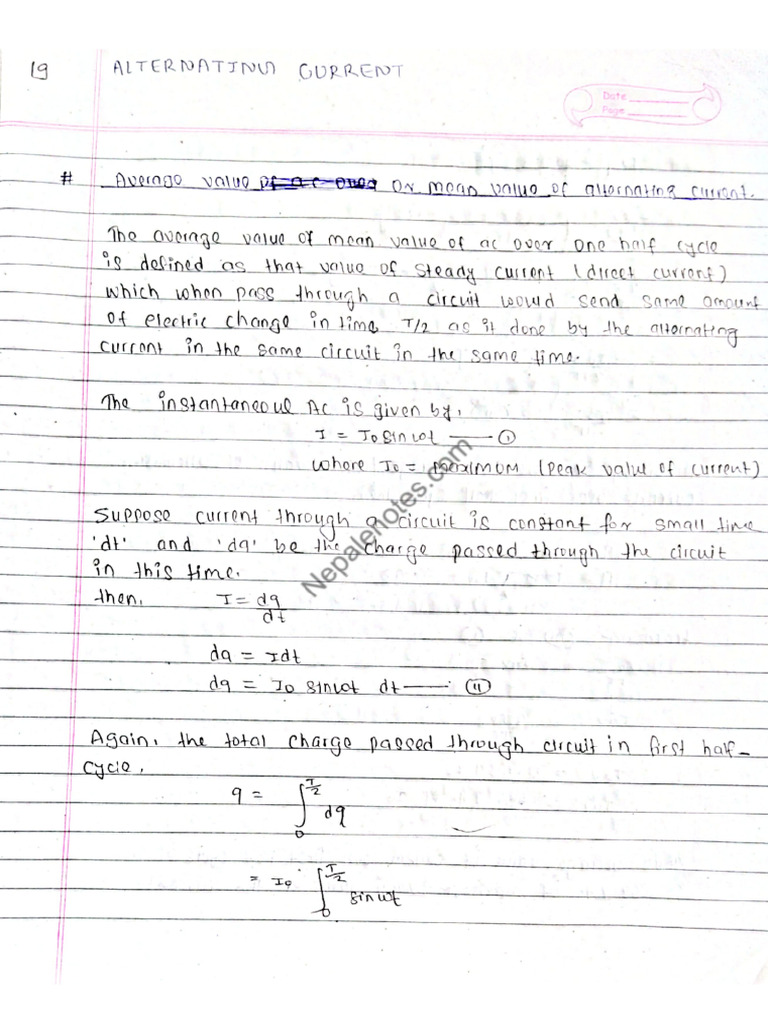 19 ALTERNATING CURRENT
Date
Page
# Average value or mean value of alternating current.
The average value of mean value of ac over one half cycle
is defined as that value of steady current (direct current)
which when pass through a circuit would send same amount
of electric change in time T/2 as it done by the alternating
current in the same circuit in the same time.
The instantaneoul AC is given by,
I = I₀ sin ωt —— ①
where I₀ = maximum (peak value of current)
Suppose current through a circuit is constant for small time
'dt' and 'dq' be the charge passed through the circuit
in this time.
then, I = dq/dt
dq = Idt
dq = I₀ sinωt dt —— ⑪
Again, the total charge passed through circuit in first half-
cycle,
q = ∫₀^{T/2} dq
= I₀ ∫₀^{T/2} sin ωt
Nepalenotes.com